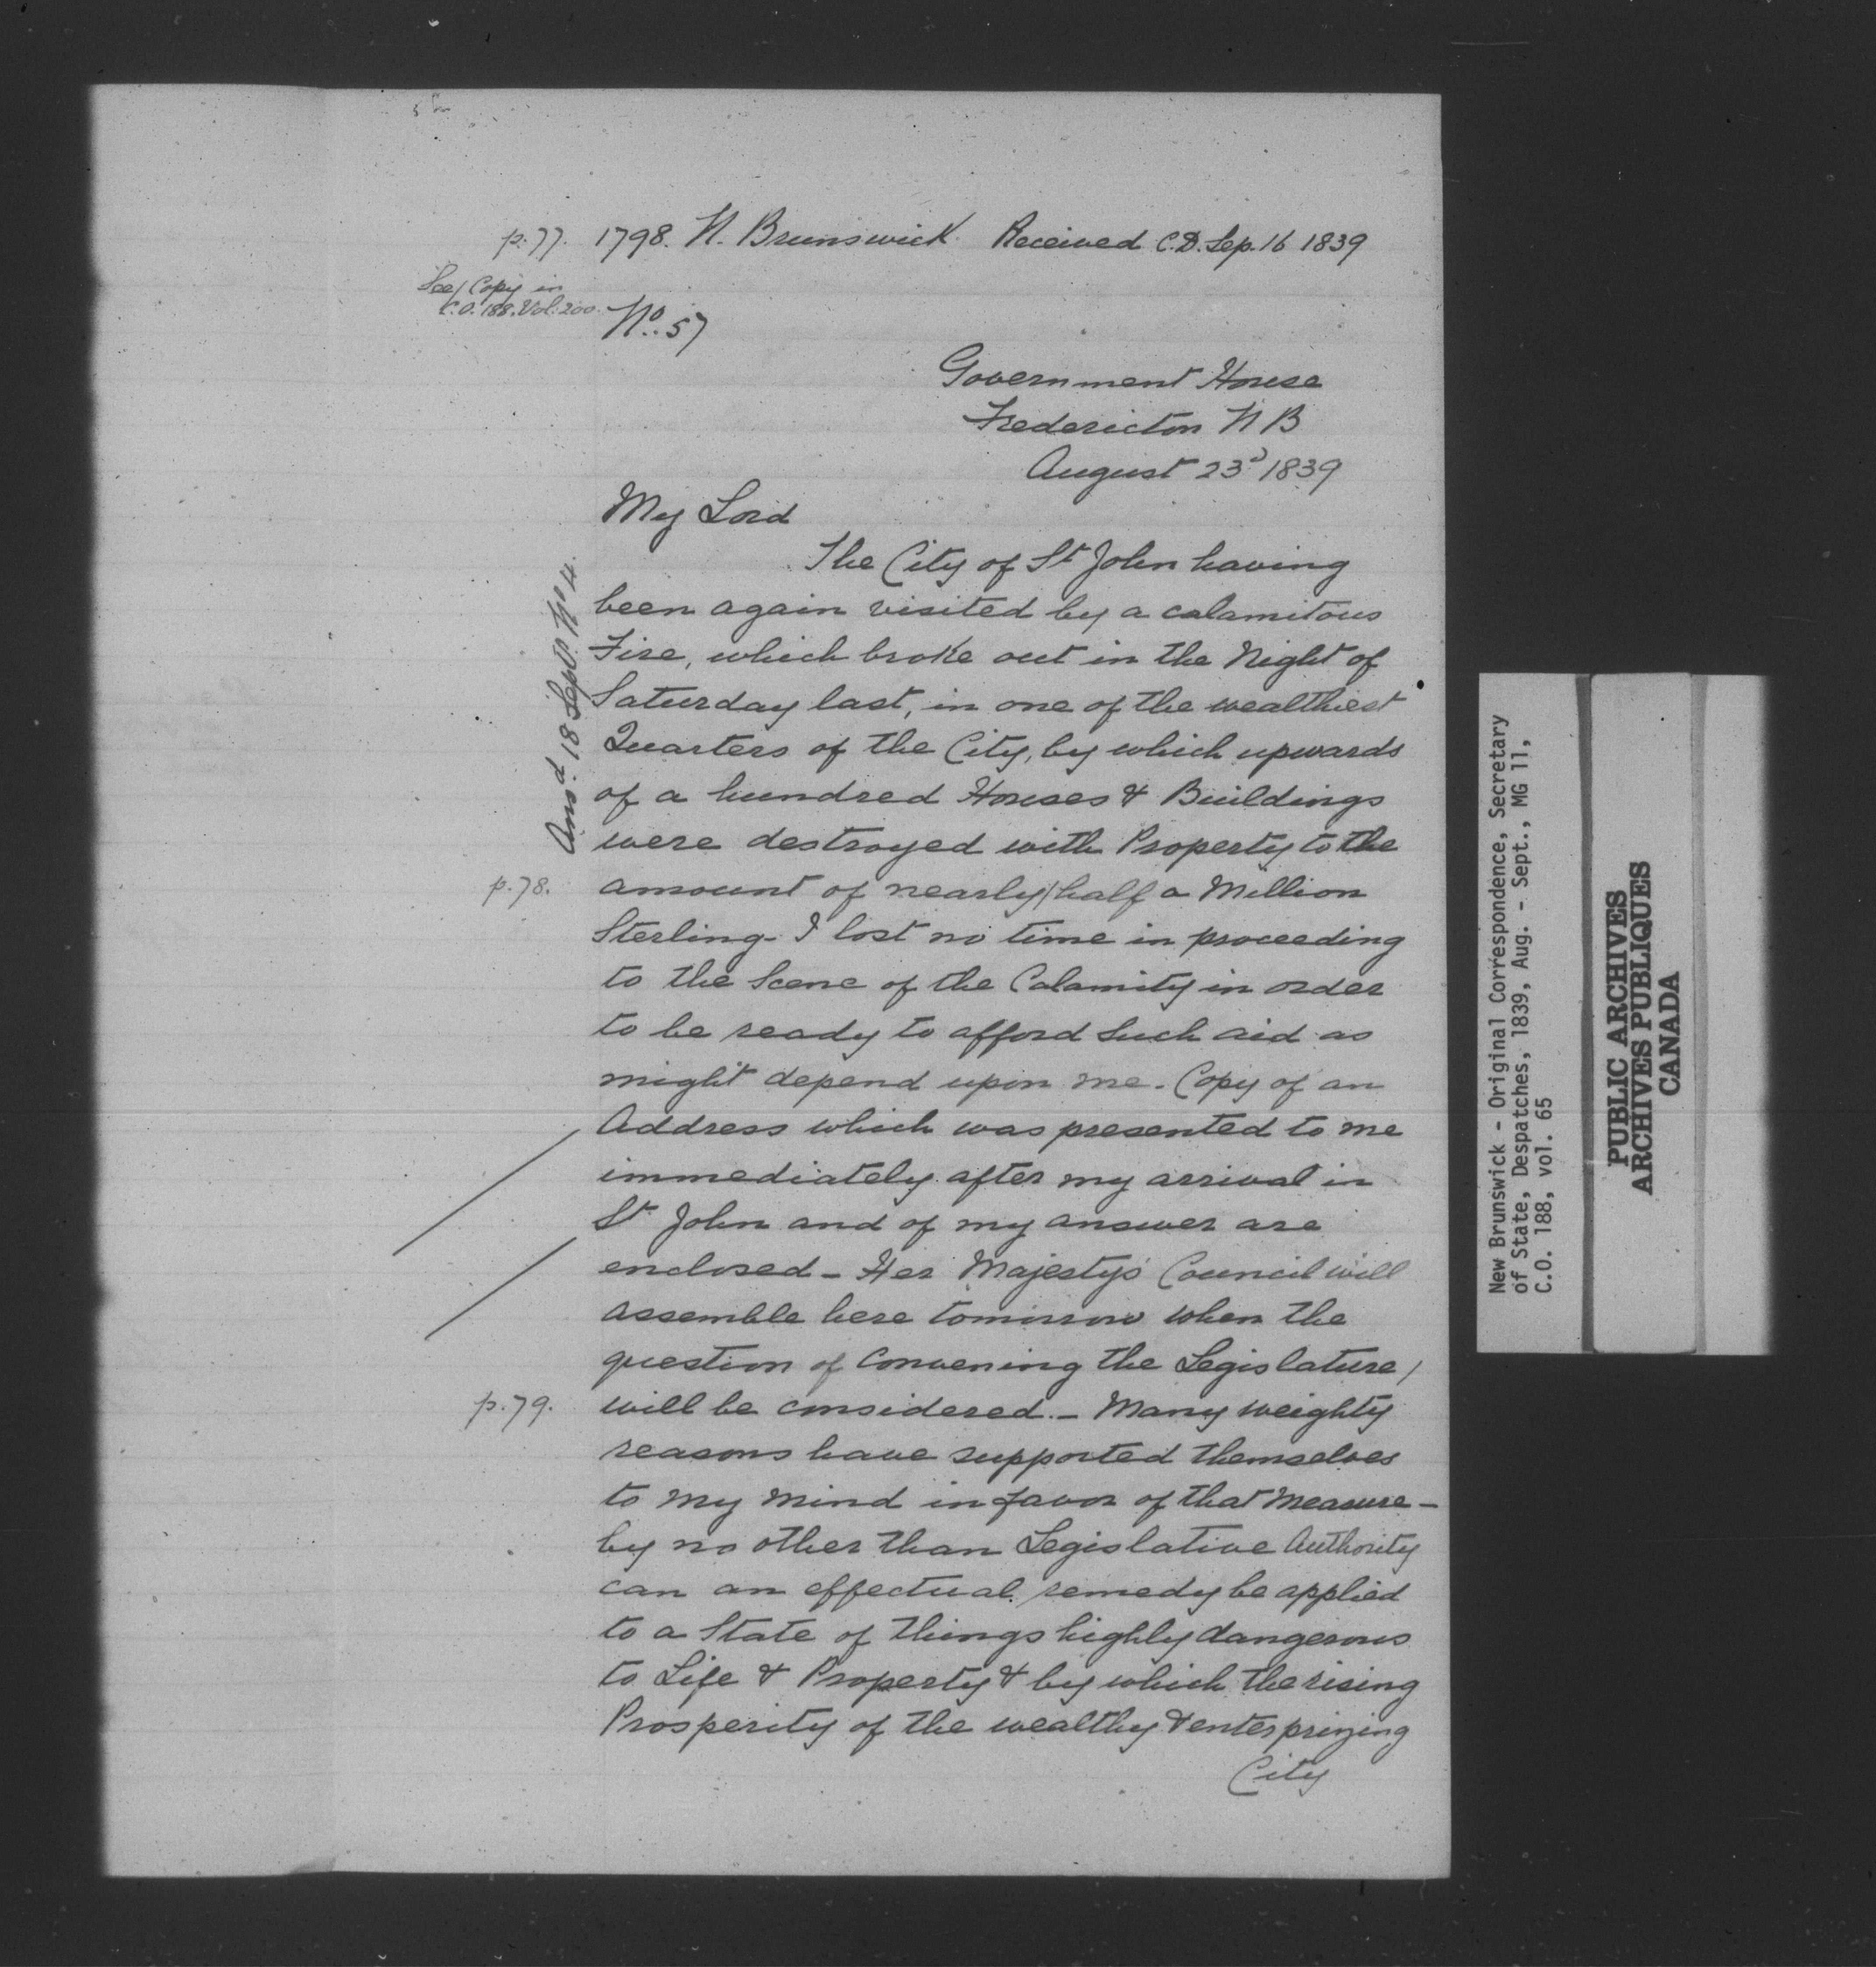 p.77. 1798. N. Brunswick Received C.D. Sep. 16 1839
See/ Copy in
C.O. 188. Vol. 200.
No. 57
Government House
Fredericton N B
August 23d 1839
My Lord
The City of St John having
been again visited by a calamitous
Fire, which broke out in the Night of
Saturday last, in one of the wealthiest
Quarters of the City, by which upwards
of a hundred Houses & Buildings
were destroyed with Property to the
p.78. amount of nearly/half a Million
Sterling - I lost no time in proceeding
to the Scene of the Calamity in order
to be ready to afford such aid as
might depend upon me. Copy of an
Address which was presented to me
immediately after my arrival in
St John and of my answer are
enclosed - Her Majesty's Council will
assemble here tomorrow when the
question of Convening the Legislature/
p.79. will be considered. - Many weighty
reasons have supported themselves
to my mind in favor of that Measure -
by no other than Legislative Authority
can an effectual remedy be applied
to a State of things highly dangerous
to Life & Property & by which the rising
Prosperity of the wealthy & enterprizing
City
Ansd. 18 Sept. No 4.
New Brunswick - Original Correspondence, Secretary
of State, Despatches, 1839, Aug. - Sept., MG 11,
C.O. 188, vol. 65
PUBLIC ARCHIVES
ARCHIVES PUBLIQUES
CANADA